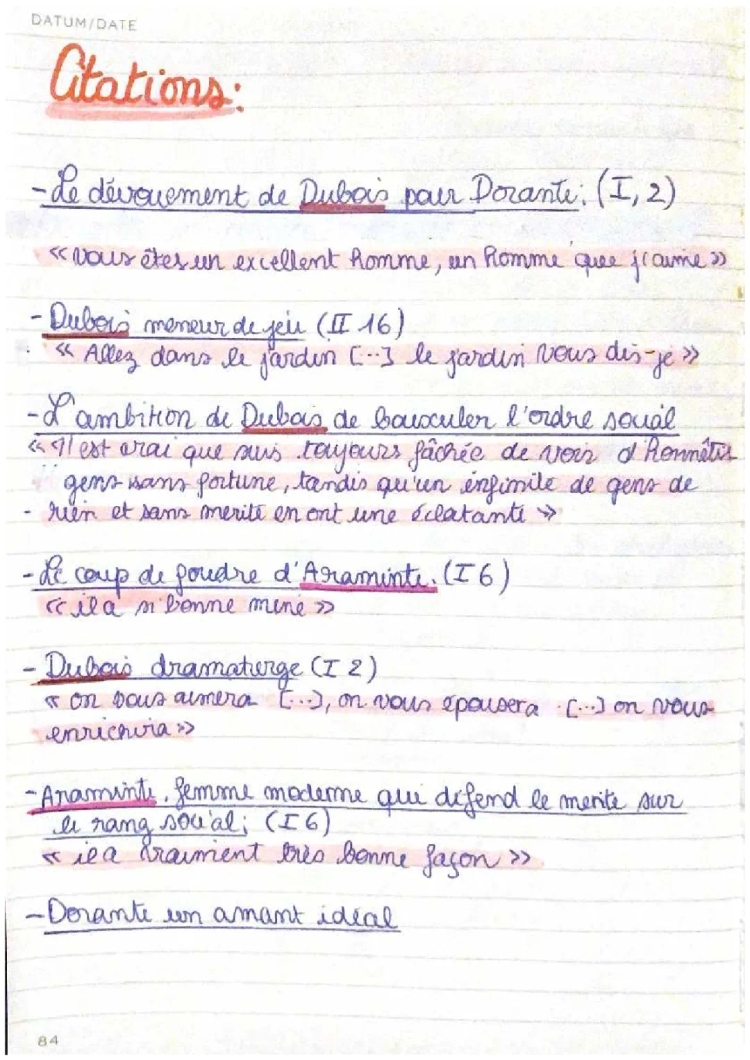 DATUM/DATE
Citations:
- Le dévouement de Dubois pour Dorante: (I, 2)
« Vous êtes un excellent homme, un homme que j'aime »
- Dubois meneur de jeu (II 16)
« Allez dans le jardin [...] le jardin vous dis-je »
- L'ambition de Dubois de bousculer l'ordre social
« Il est vrai que suis toujours fâchée de voir d'honnêtes
gens sans fortune, tandis qu'un infinité de gens de
- rien et sans mérite en ont une éclatante »
- Le coup de foudre d'Araminte. (I 6)
« il a si bonne mine »
- Dubois dramaturge (I 2)
« on vous aimera [...], on vous épousera [...] on vous
enrichira »
- Araminte, femme moderne qui défend le mérite sur
le rang social; (I 6)
« il a vraiment très bonne façon »
- Dorante un amant idéal
84